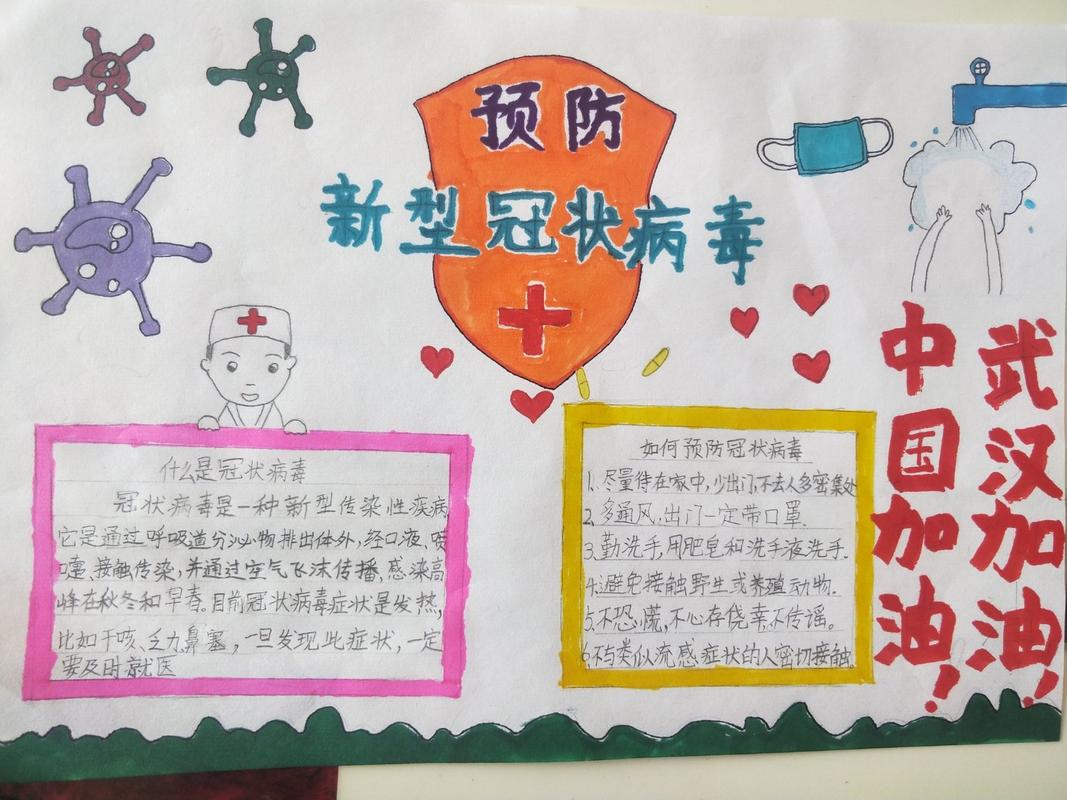 预防
新型冠状病毒
什么是冠状病毒
冠状病毒是一种新型传染性疾病
它是通过呼吸道分泌物排出体外,经口液、喷
嚏、接触传染,并通过空气飞沫传播,感染高
峰在秋冬和早春。目前冠状病毒症状是发热,
比如干咳、乏力鼻塞,一旦发现此症状,一定
要及时就医
如何预防冠状病毒
1、尽量待在家中,少出门,不去人多密集处
2、多通风,出门一定带口罩.
3、勤洗手,用肥皂和洗手液洗手.
4、避免接触野生或养殖动物.
5、不恐慌,不心存侥幸,不传谣。
6、不与类似流感症状的人密切接触
武汉加油!
中国加油!